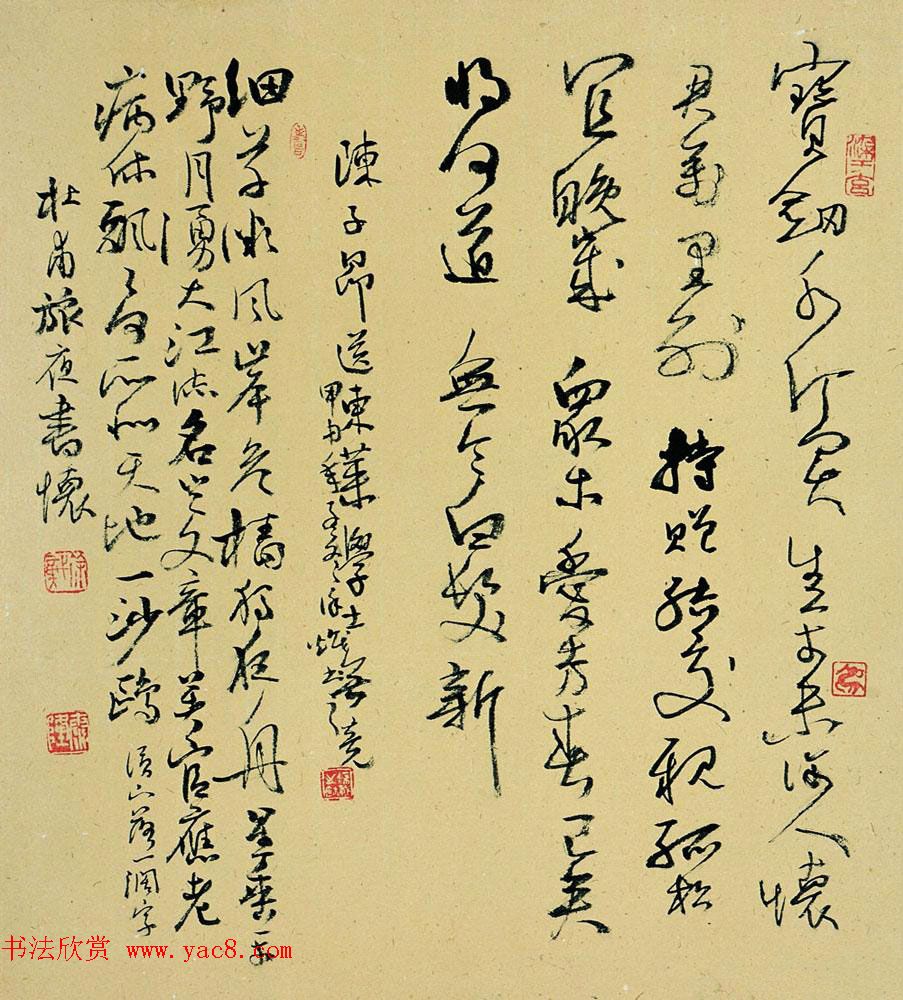 寶劍千金買生平未許人懷
君萬里別持贈結交親孤松
宜晚歲眾木愛芳春已矣
將何道無令白髮新
陳子昂送東萊學士無競
細草微風岸危檣獨夜舟星垂平
野月湧大江流名豈文章著官應老
病休飄飄何所似天地一沙鷗
落一闊字
杜甫旅夜書懷
书法欣赏 www.yac8.com